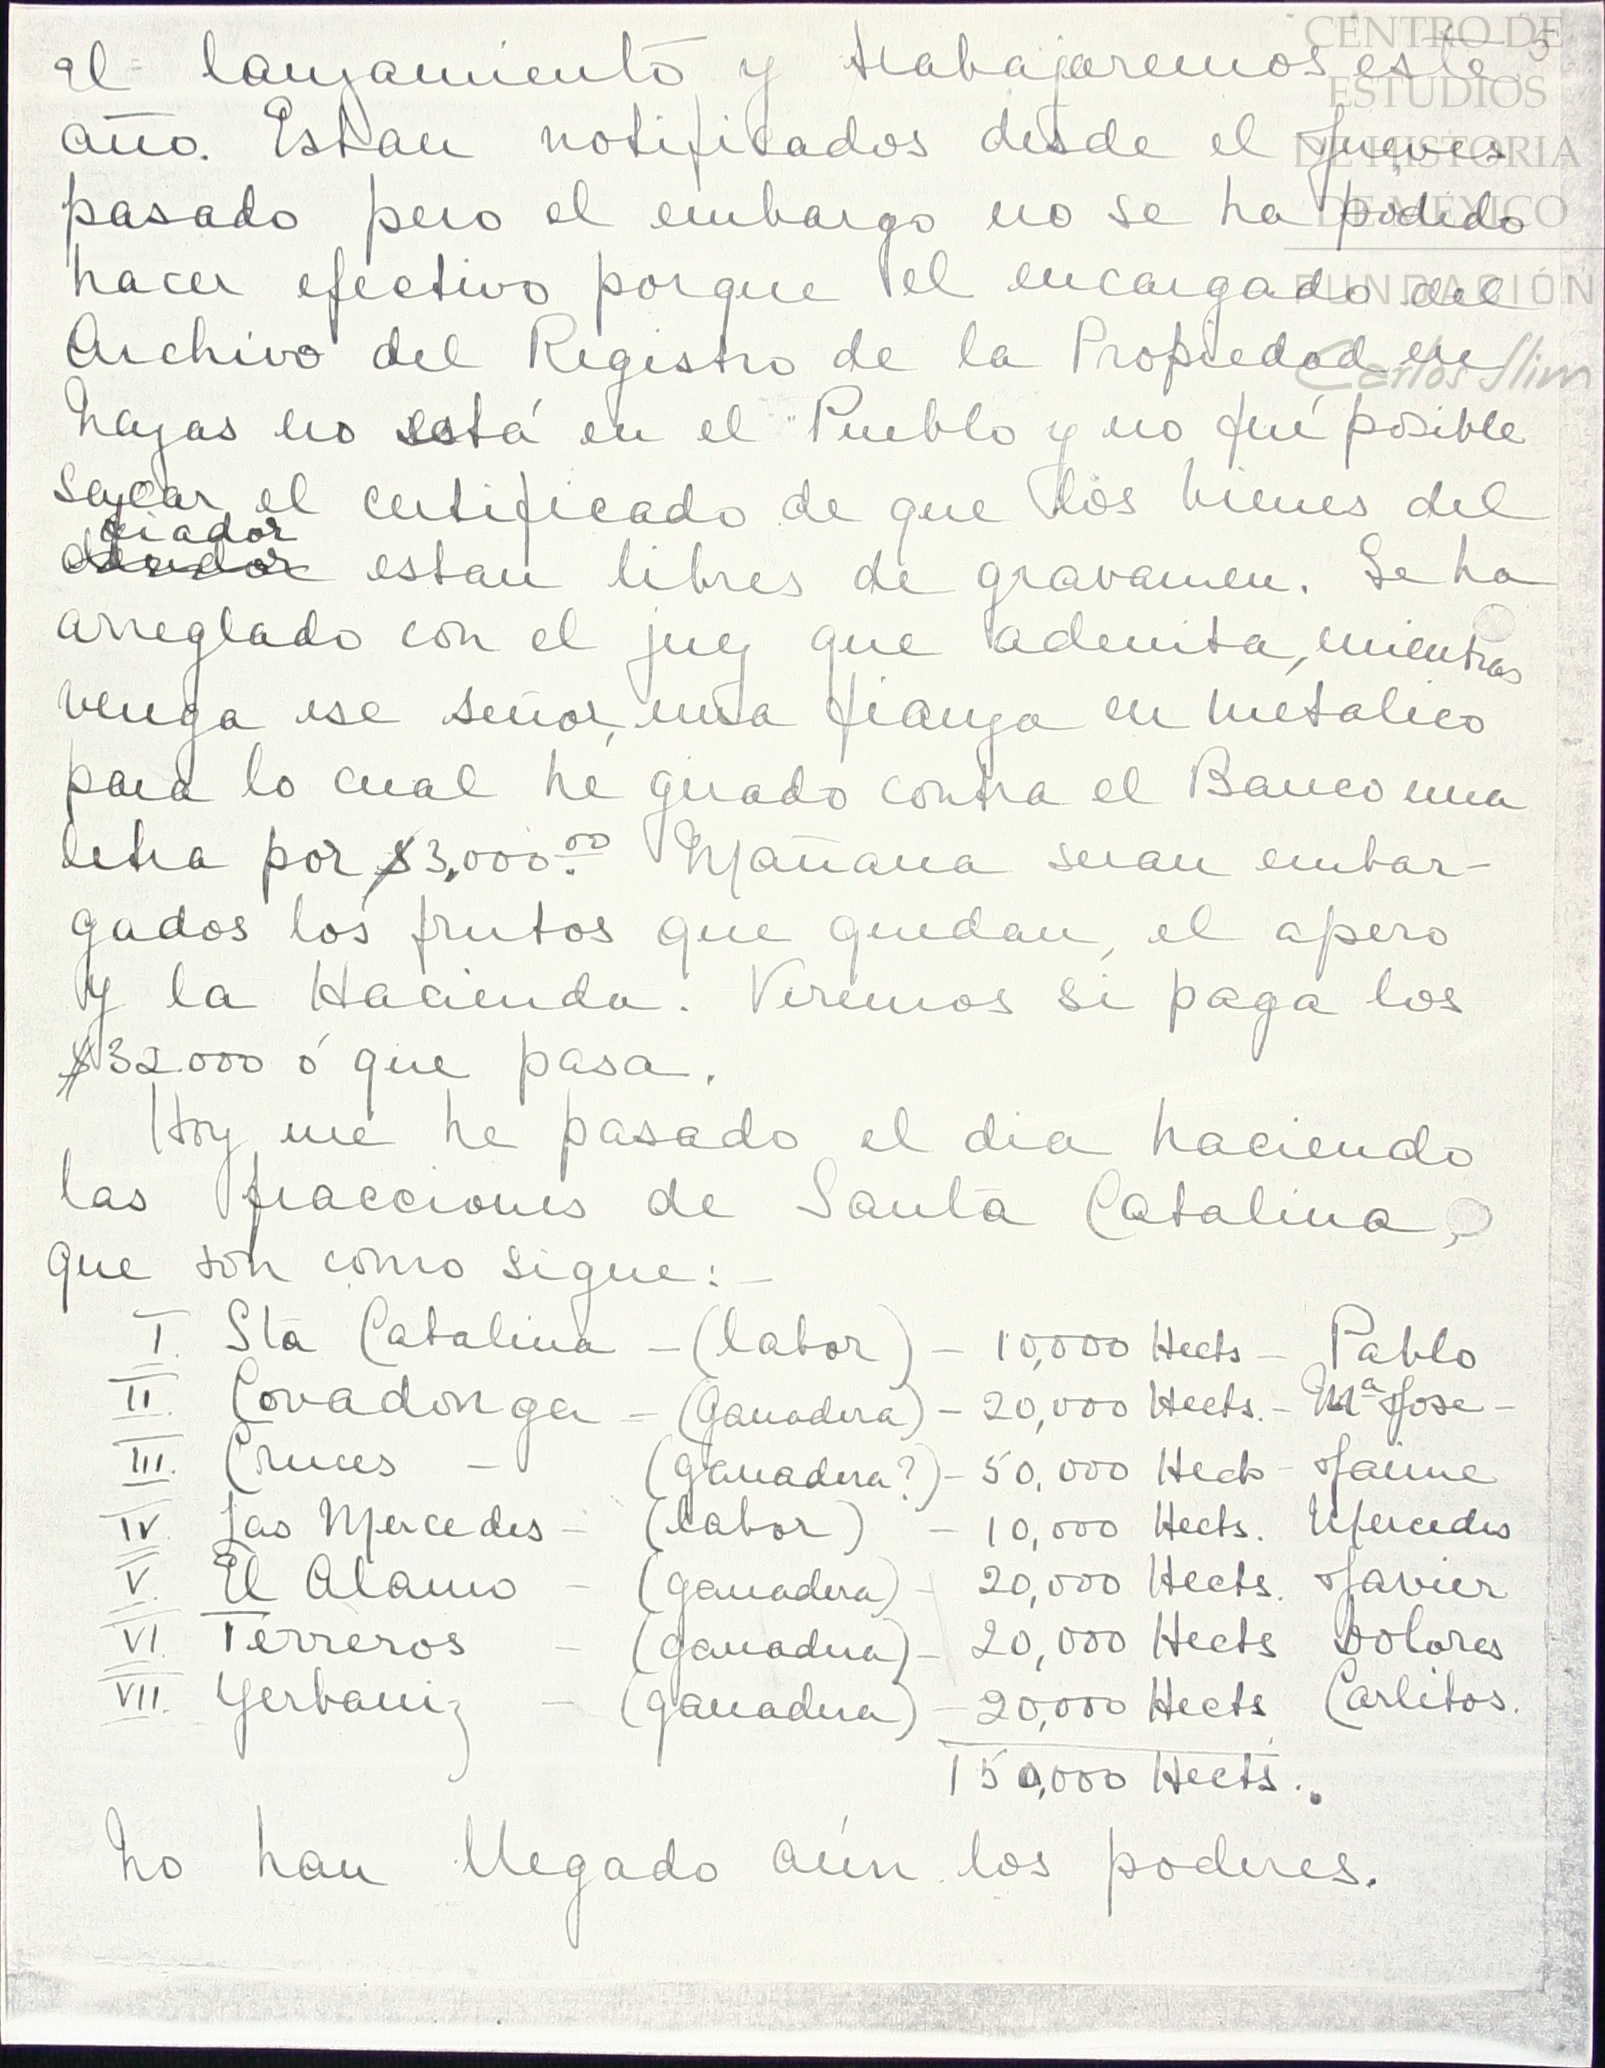 5
el lanzamiento y trabajaremos este
año. Estan notificados desde el Jueves
pasado pero el embargo no se ha podido
hacer efectivo porque el encargado del
Archivo del Registro de la Propiedad en
Nazas no está en el Pueblo y no fué posible
sacar el certificado de que los bienes del
fiador
deudor estan libres de gravamen. Se ha
arreglado con el juez que admita, mientras
venga ese señor, una fianza en métalico
para lo cual hé girado contra el Banco una
letra por $3,000.00 Mañana seran embar-
gados los frutos que quedan, el apero
y la Hacienda. Veremos si paga los
$32.000 ó que pasa.
Hoy me he pasado el dia haciendo
las fracciones de Santa Catalina,
que son como sigue:-
I. Sta Catalina - (labor) - 10,000 Hects - Pablo
II. Covadonga - (Ganadera) - 20,000 Hects. - Mª Jose -
III. Cruces - (ganadera?) - 50,000 Hects - Jaime
IV. Las Mercedes - (labor) - 10,000 Hects. Mercedes
V. El Alamo - (ganadera) - 20,000 Hects. Javier
VI. Terreros - (ganadera) - 20,000 Hects Dolores
VII. Yerbaniz - (ganadera) - 20,000 Hects Carlitos.
150,000 Hects.
No han llegado aún los poderes.
CENTRO DE
ESTUDIOS
DE HISTORIA
DE MÉXICO
FUNDACIÓN
Carlos Slim